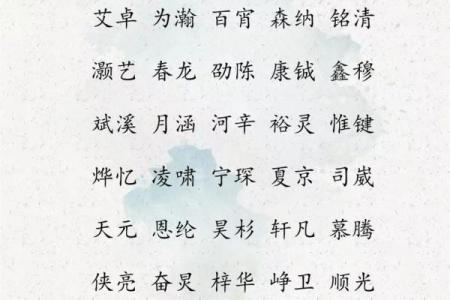 艾卓 为瀚 百宵 森纳 铭清
灏艺 春龙 劭陈 康铖 鑫穆
斌溪 月涵 河辛 裕灵 惟键
烨忆 凌啸 宁琛 夏京 司崴
天元 恩纶 昊杉 轩凡 慕腾
侠亮 奋炅 梓华 峥卫 顺光